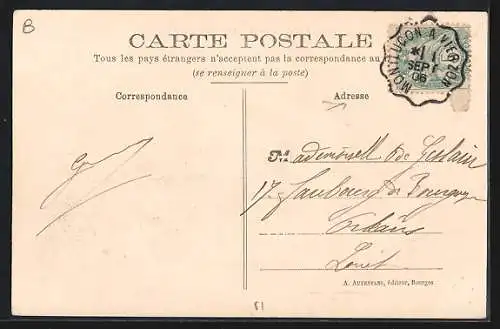 B
CARTE POSTALE
Tous les pays étrangers n'acceptent pas la correspondance au
(se renseigner à la poste)
MONTLUÇON A VIERZON
*1
SEPT
06
Correspondance
Adresse
Mademoiselle de
17 Faubourg de Bourgogne
Orléans
Loiret
A. AUXENFANS, éditeur, Bourges